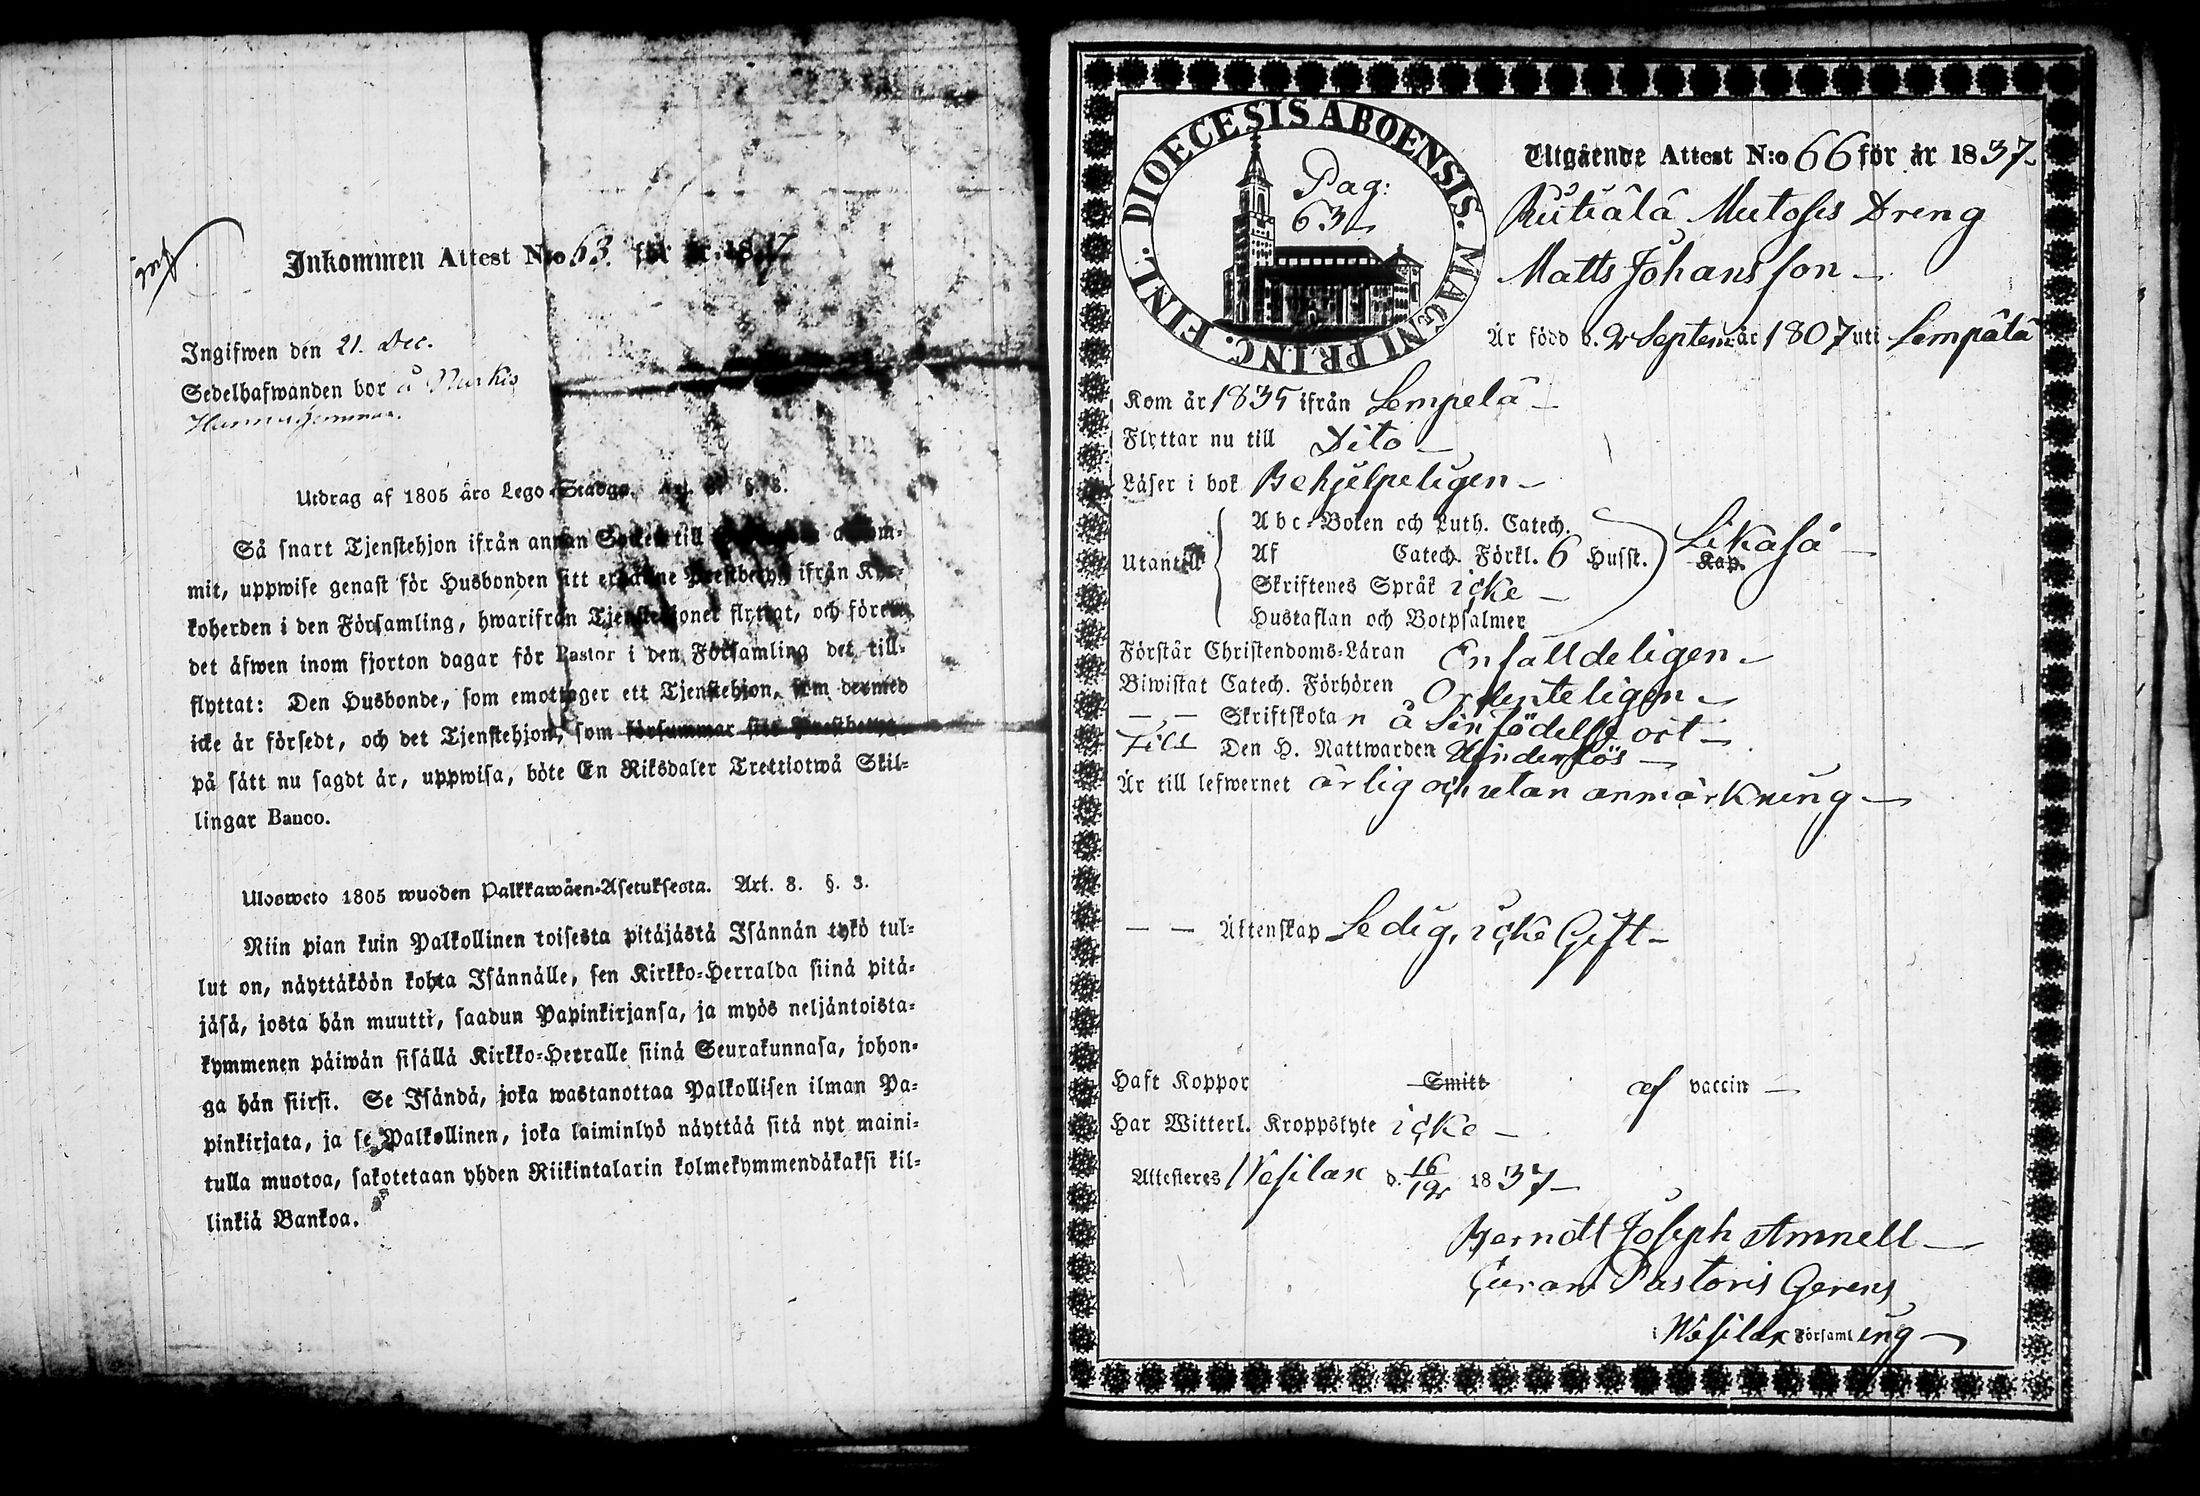 Inkommen Attest N:o 63. för år 1837
Ingifwen den 21. Dec.
Sedelhafwanden bor å
Utdrag af 1805 års Lego-Stadga. Art. 8. §. 3.
Så snart Tjenstehjon ifrån annan Socken till
mit, uppwise genast för Husbonden sitt ifrån Kyr-
koherden i den Församling, hwarifrån Tjenstehjonet flyttat, och förete
det äfwen inom fjorton dagar för Pastor i den Församling det till-
flyttat: Den Husbonde, som emottager ett Tjenstehjon, som dermed
icke är försedt, och det Tjenstehjon, som försummar sitt Prestbetyg,
på sätt nu sagdt är, uppwisa, böte En Riksdaler Trettiotwå Skil-
lingar Banco.
Ulosweto 1805 wuoden Palkkawäen-Asetuksesta. Art. 8. §. 3.
Niin pian kuin Palkollinen toisesta pitäjästä Isännän tykö tul-
lut on, näyttäköön kohta Isännälle, sen Kirkko-Herralda siinä pitä-
jäsä, josta hän muutti, saadun Papinkirjansa, ja myös neljäntoista-
kymmenen päiwän sisällä Kirkko-Herralle siinä Seurakunnasa, johon-
ga hän siirsi. Se Isändä, joka wastanottaa Palkollisen ilman Pa-
pinkirjata, ja se Palkollinen, joka laiminlyö näyttää sitä nyt maini-
tulla muotoa, sakotetaan yhden Riikintalarin kolmekymmendäkaksi kil-
linkiä Bankoa.
DIOECESIS ABOENSIS. MAGNI PRINC. FINL.
Pag:
63
Utgående Attest N:o 66 för år 1837
Dreng
Matts Johansson
Är född d. 2 Septem år 1807 uti Lempälä
Kom år 1835 ifrån Lempelä
Flyttar nu till Dito
Läser i bok Behjelpeligen
Utantill
Abc-Boken och Luth. Catech.
Af Catech. Förkl. 6 Husst. Kap. Likaså
Skriftenes Språk icke
Hustaflan och Botpsalmer
Förstår Christendoms-Läran Enfalldeligen
Biwistat Catech. Förhören Ordenteligen
— „ — Skriftskolan å Sin födelse ort
Till Den H. Nattwarden Hinderlös
Är till lefwernet ärlig och utan anmärkning
— — Äktenskap Ledig, icke Gift
Haft Koppor Smitt af vaccin
Har Witterl. Kroppslyte icke
Attesteres Wesilax d. 16/12 1837
Berndt Joseph Amnell
Curam Pastoris Gerens
i Wesilax Församling